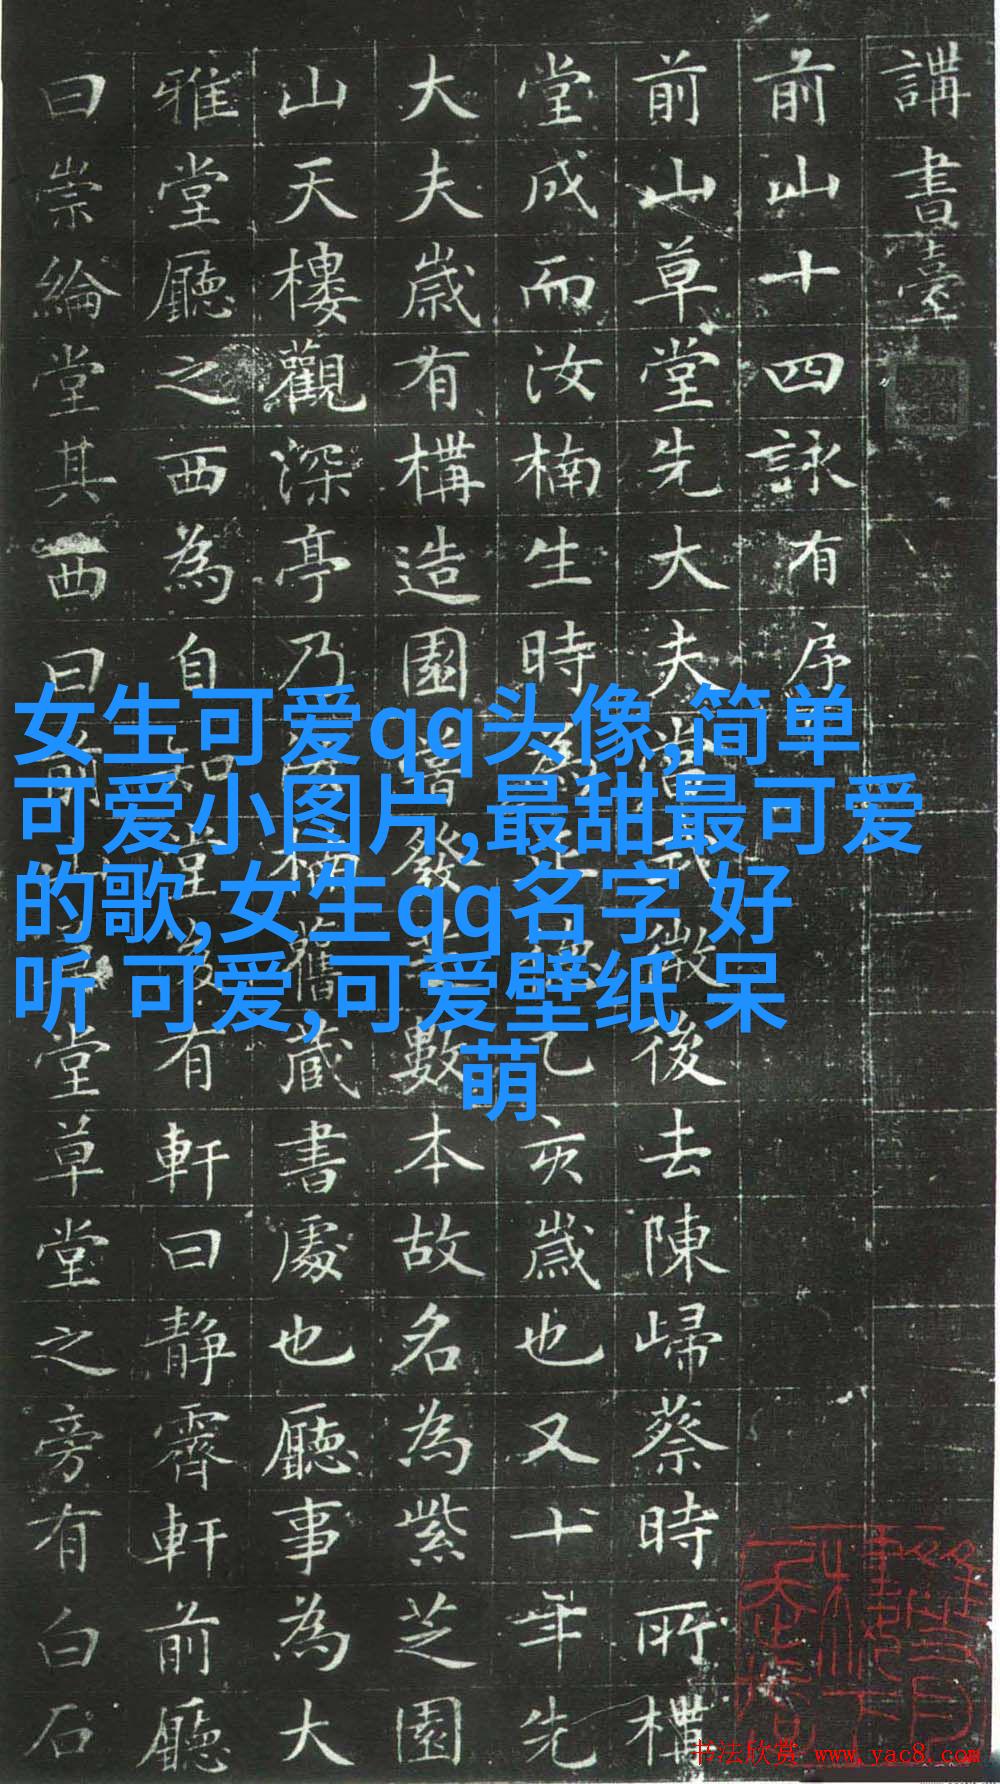 講書臺
前山十四詠有序
前山草堂先大夫後去陳歸蔡時所構
堂成而汝楠生時為正德乙亥歲也又十年先
大夫歲有構造園曾發芝數本故名為紫芝園
山天樓觀深亭乃楠舊藏書處也廳事為大
雅堂廳之西為自知堂後有軒曰靜霽軒前廳
曰崇綸堂其西曰前山草堂草堂之旁有白石
女生可爱qq头像,简单
可爱小图片,最甜最可爱
的歌,女生qq名字 好
听 可爱,可爱壁纸 呆
萌
书法欣赏 www.yac8.com